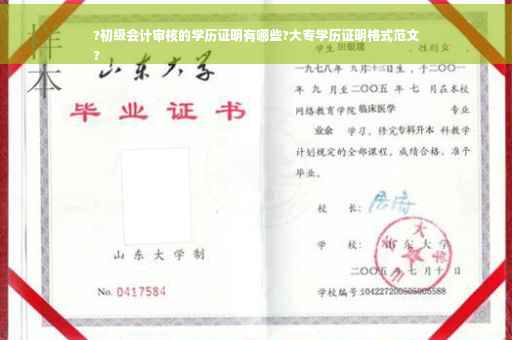 ?初级会计审核的学历证明有哪些?大专学历证明格式范文
?
样本
山东大学
毕业证书
山东大学制
No. 0417584
学生 性别女,
一九七八年九月十三日生,于二〇〇一
年九月至二〇〇五年七月在本校
网络教育学院临床医学 专业
业余 学习,修完专科升本科教学
计划规定的全部课程,成绩合格,准予
毕业。
校 长:
学 校:山东大学
二〇〇五年七月十日
学校编号: